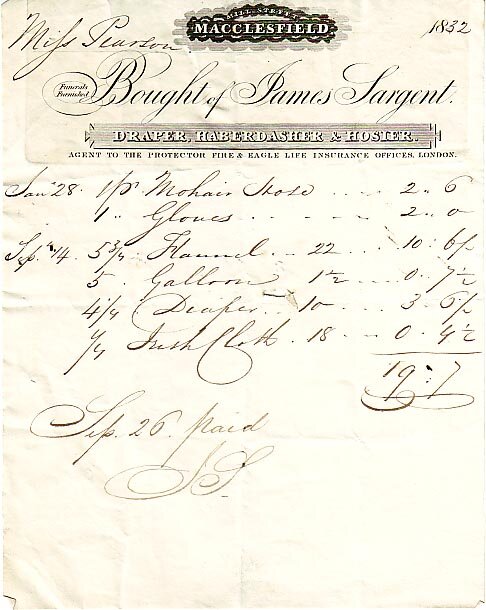 Miss Pearson
MACCLESFIELD
1832
Funerals Furnished
Bought of James Sargent.
DRAPER, HABERDASHER & HOSIER.
AGENT TO THE PROTECTOR FIRE & EAGLE LIFE INSURANCE OFFICES, LONDON.
Jany 28. 1/pr Mohair Hose .... 2 .. 6
1 .. Gloves ..... 2 .. 0
Sepr 14 5 3/4 Flannel .. 22 .... 10 : 6 1/2
5 Galloon 1 1/2 ... 0 . 7 1/2
4 1/4 Diaper .. 10 ... 3 . 6 1/2
1/4 Irish Cloth . 18 ... 0 . 4 1/2
19 : 7
Sep. 26. paid
JS.